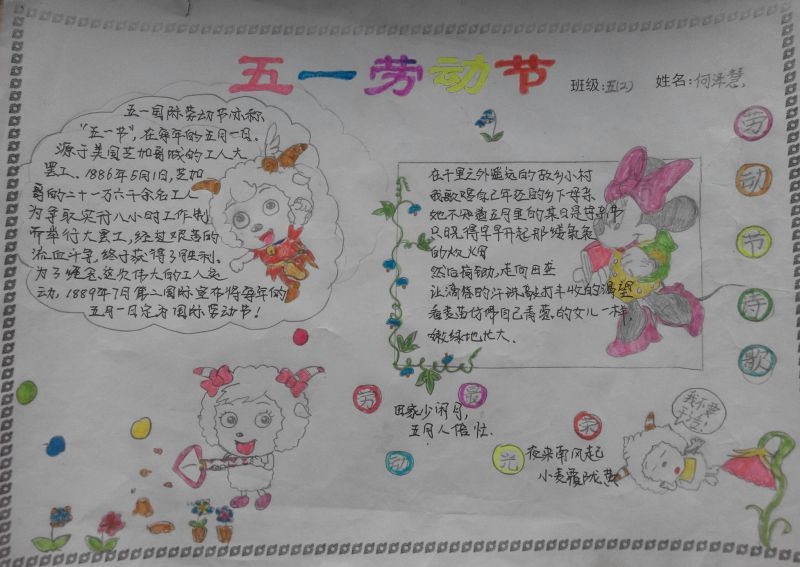 五一劳动节
班级:五(2) 姓名:何泽慧
五一国际劳动节亦称
“五一节”,在每年的五月一日。
源于美国芝加哥城的工人大
罢工。1886年5月1日,芝加
哥的二十一万六千余名工人
为争取实行八小时工作制
而举行大罢工,经过艰苦的
流血斗争,终于获得了胜利。
为了纪念这次伟大的工人运
动,1889年7月第二国际宣布将每年的
五月一日定为国际劳动节!
在千里之外遥远的故乡小村
我歌唱自己年迈的乡下母亲
她不知道五月里的某日是母亲节
只晓得早早升起那缕氤氲
的炊烟
然后荷锄,走向田垄
让滴落的汗珠融成丰收的渴望
看麦苗仿佛自己青葱的女儿一样
嫩绿地长大.
劳
动
节
诗
歌
劳
动
最
光
荣
田家少闲月,
五月人倍忙.
夜来南风起
小麦覆陇黄
我不要
干活!